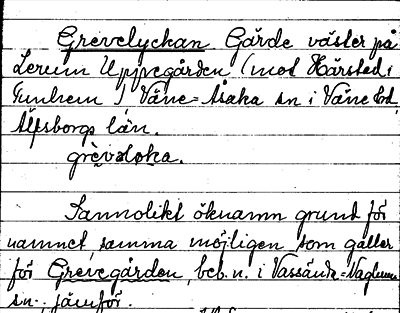 Grevelyckan Gärde väster på
Lerum Uppegården (mot Hårstad i
Gunhem) Väne-Åsaka sn i Väne hd,
Älfsborgs län.
grèvəlỳka.
Sannolikt öknamn grund för
namnet samma möjligen som gäller
för Grevegården, beb. n. i Vassända-Naglums
sn., jämför.